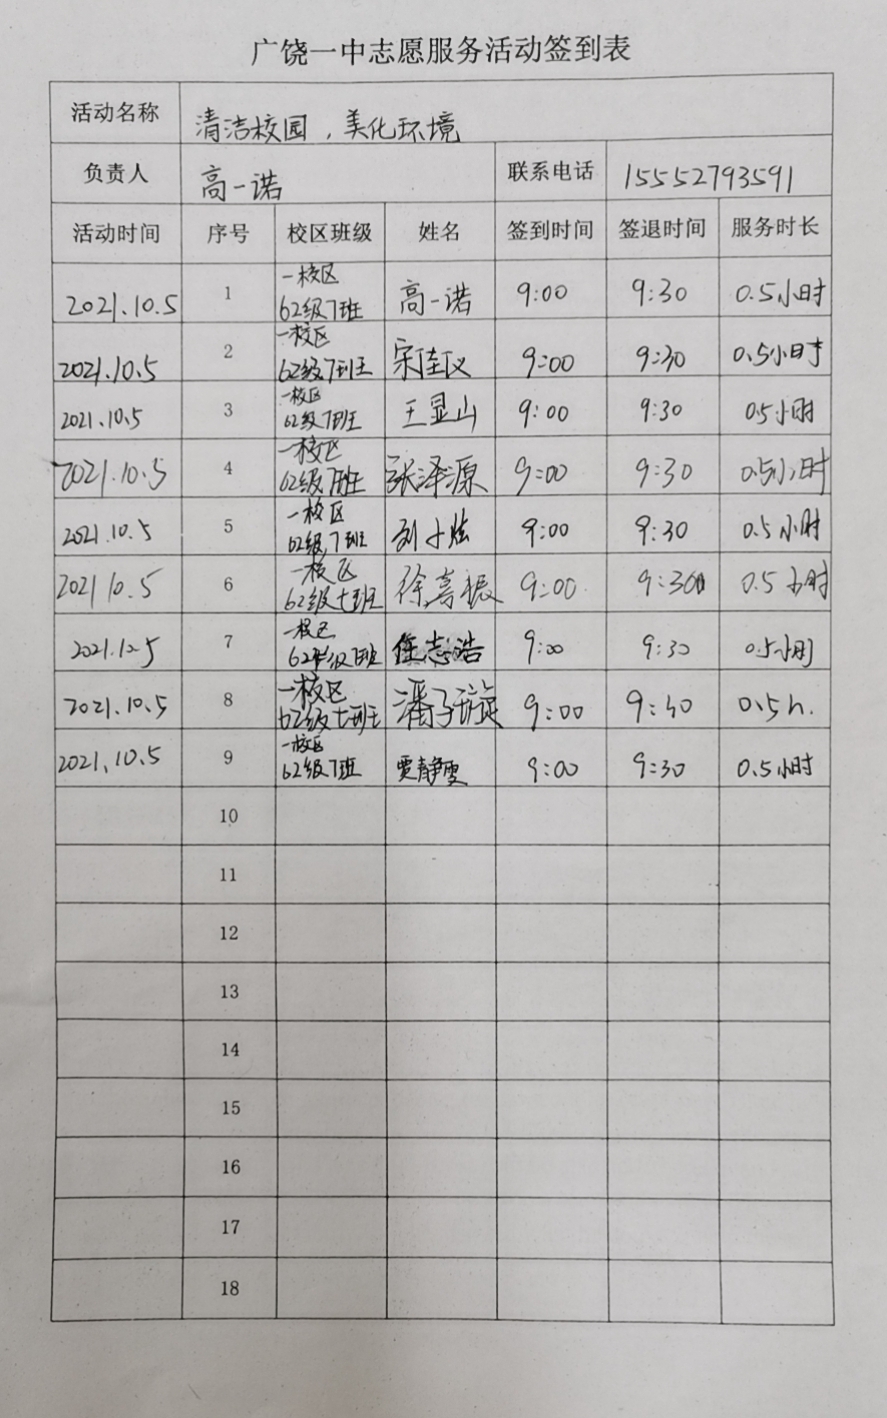 广饶一中志愿服务活动签到表
活动名称 清洁校园，美化环境
负责人 高一诺 联系电话 15552793591
活动时间 序号 校区班级 姓名 签到时间 签退时间 服务时长
2021.10.5 1 一校区 62级7班 高一诺 9:00 9:30 0.5小时
2021.10.5 2 一校区 62级7班 宋佳仪 9:00 9:30 0.5小时
2021.10.5 3 一校区 62级7班 王显山 9:00 9:30 0.5小时
2021.10.5 4 一校区 62级7班 张泽源 9:00 9:30 0.5小时
2021.10.5 5 一校区 62级7班 刘子炫 9:00 9:30 0.5小时
2021 10.5 6 一校区 62级七班 徐嘉振 9:00 9:30 0.5小时
7 一校区 62级7班 任志浩 9:00 9:30 0.5小时
2021.10.5 8 一校区 62级七班 潘子璇 9:00 0.5h.
2021.10.5 9 一校区 62级7班 贾静雯 9:00 9:30 0.5小时
10
11
12
13
14
15
16
17
18